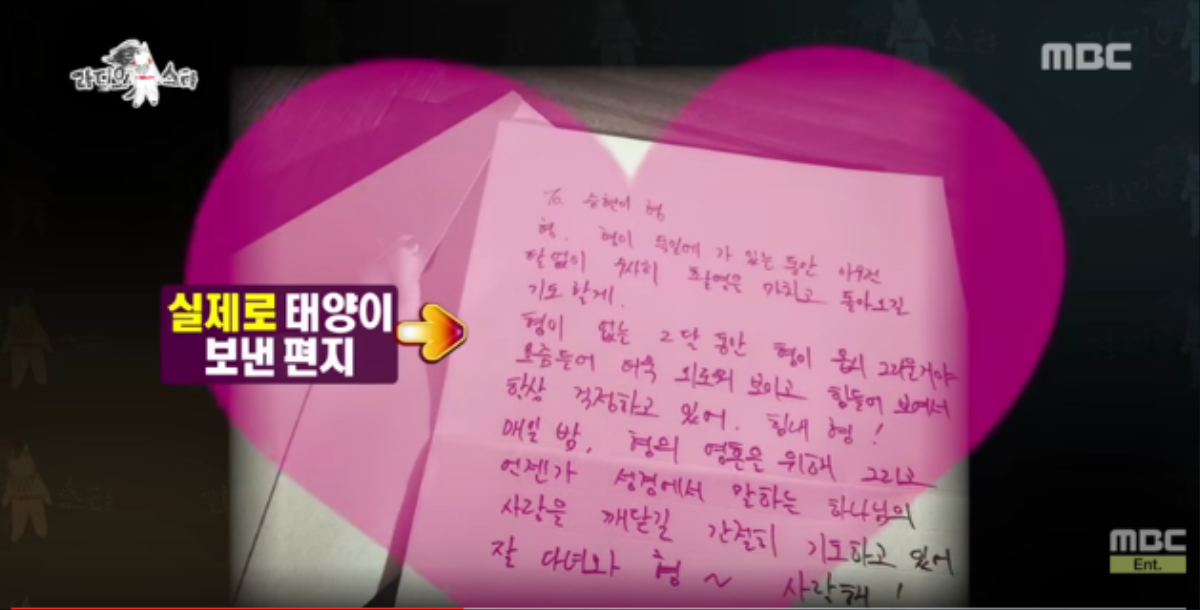 라디오스타
MBC
실제로 태양이
보낸 편지
To. 승현이 형
형. 형이 독일에 가 있는 동안 아무런
탈 없이 무사히 촬영을 마치고 돌아오길
기도 할게.
형이 없는 2달 동안 형이 몹시 그리울거야
요즘들어 더욱 외로워 보이고 힘들어 보여서
항상 걱정하고 있어. 힘내 형!
매일 밤, 형의 영혼을 위해 그리고
언젠가 성경에서 말하는 하나님의
사랑을 깨닫길 간절히 기도하고 있어
잘 다녀와 형 ~ 사랑해!
MBC
Ent.